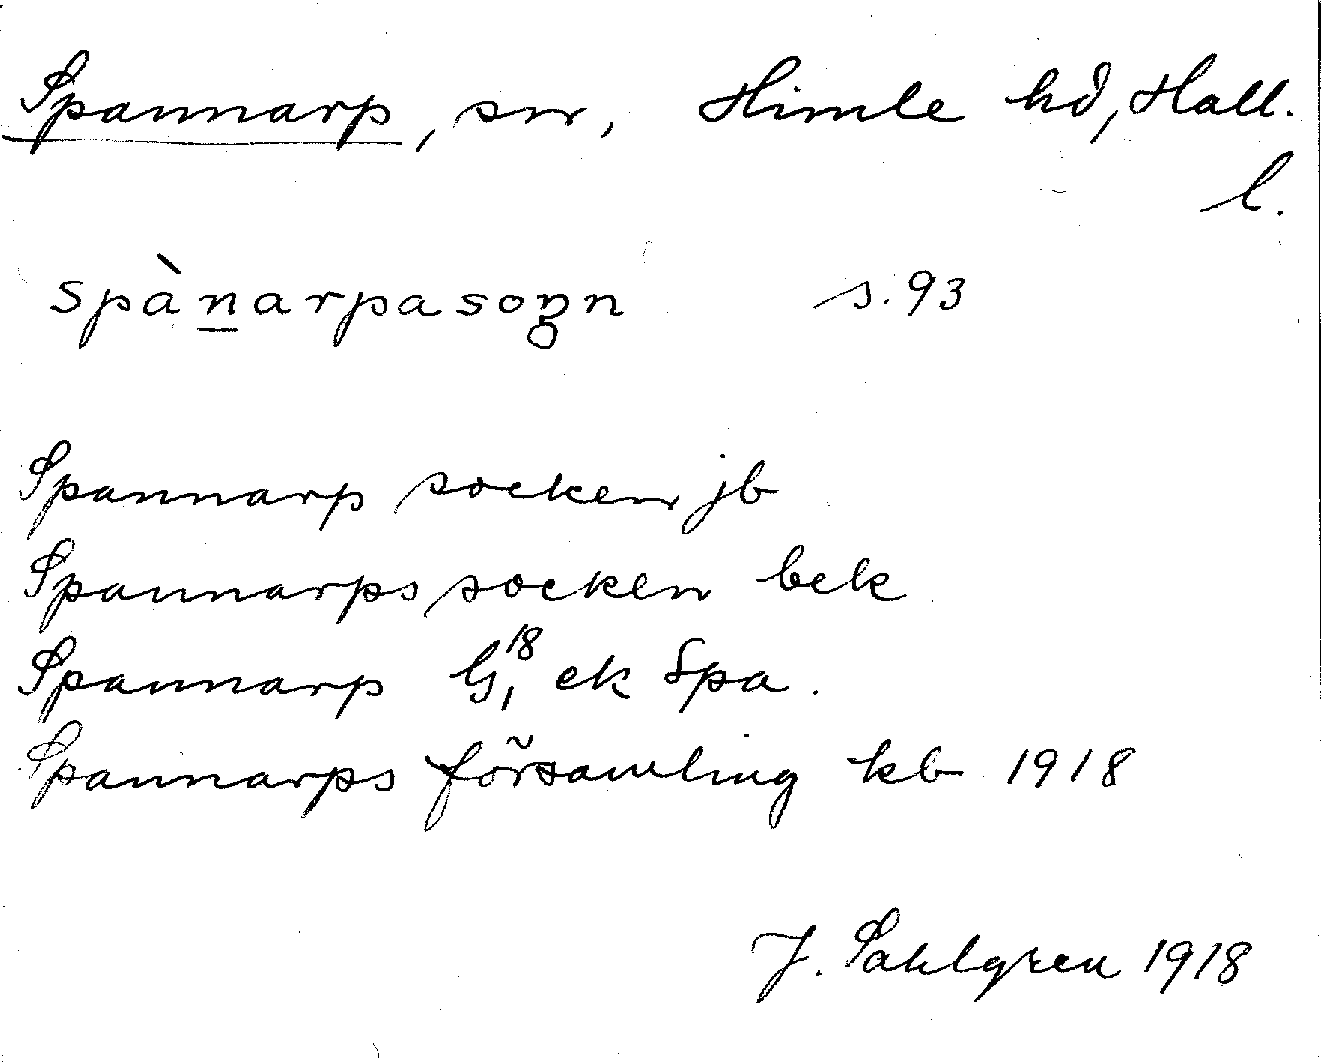 Spannarp, sn, Himle hd, Hall.
l.
spànarpasoŋn s. 93
Spannarp socken jb
Spannarps socken bek
Spannarp G, 18 ek Spa.
Spannarps församling kb 1918
J. Sahlgren 1918